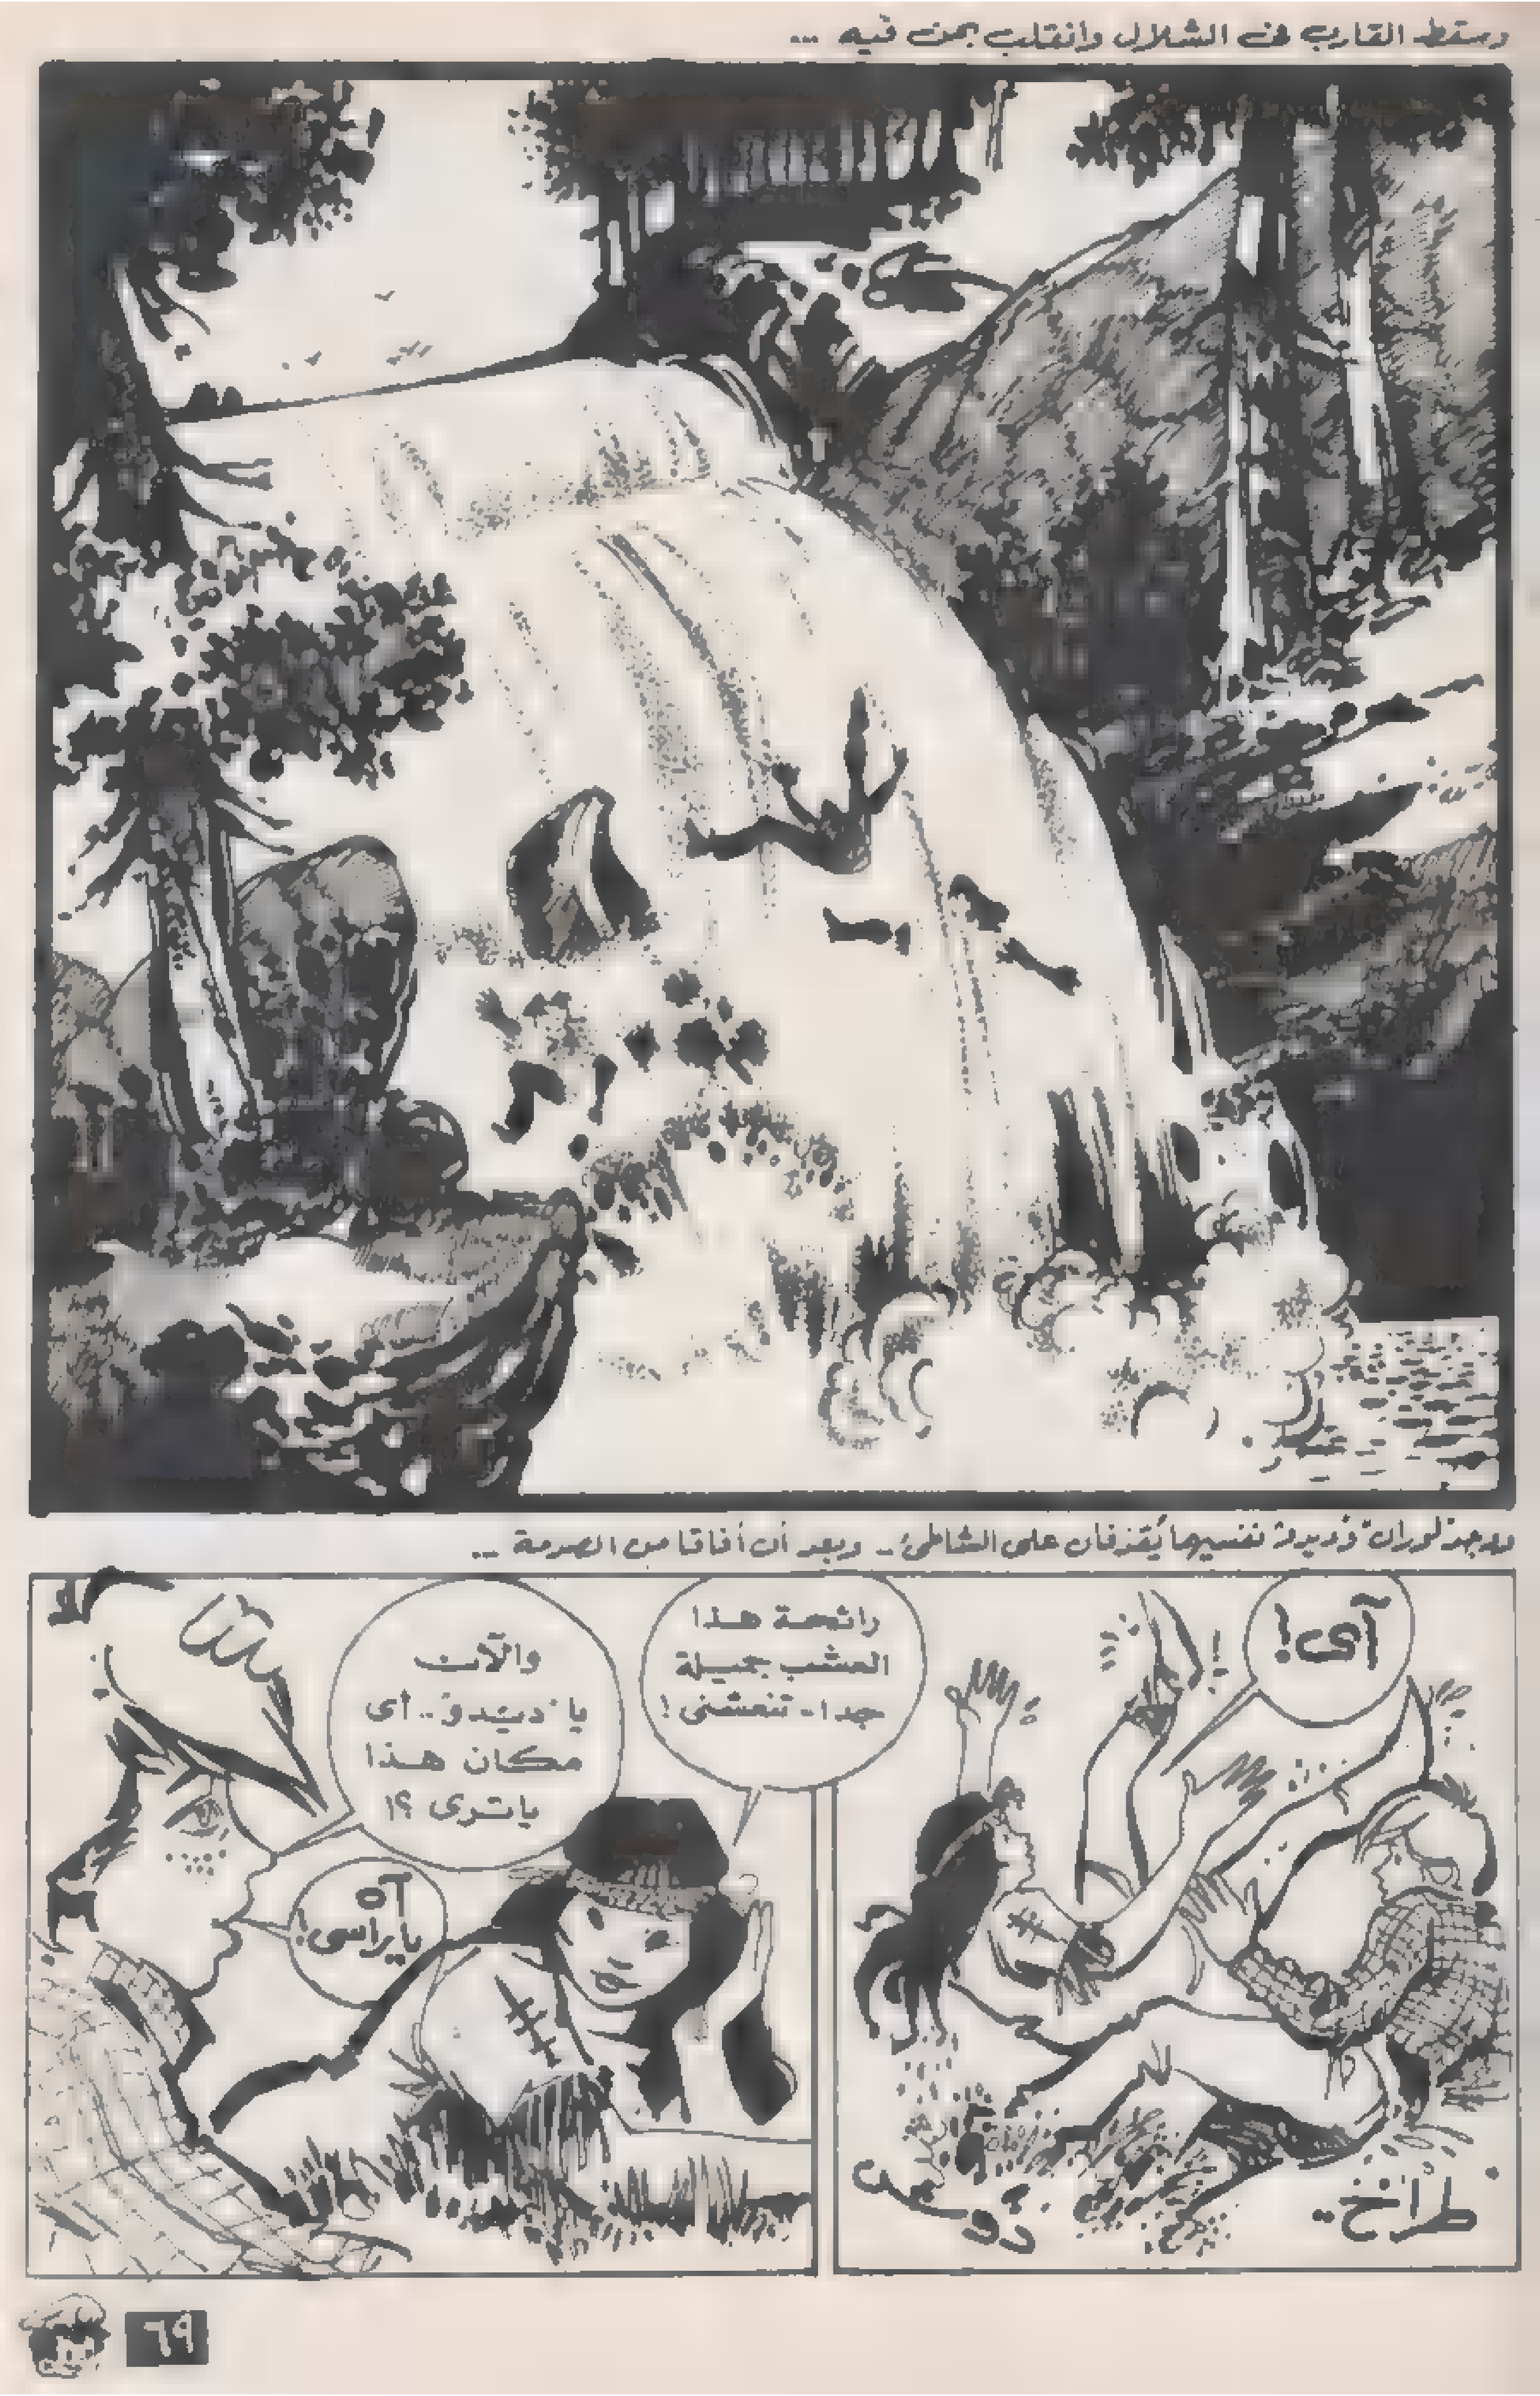 وسقط القارب فى الشلال وانقلب بمن فيه ...
ووجد "لوران" و"ديدو" نفسيهما يُقذفان على الشاطئ.. وبعد أن أفاقا من الصدمة ...
آى!
طراخ..
رائحة هذا
العشب جميلة
جدا.. تنعشنى!
والآن
يا "ديدو".. أى
مكان هذا
ياترى ؟!
آه
ياراسى!
٦٩